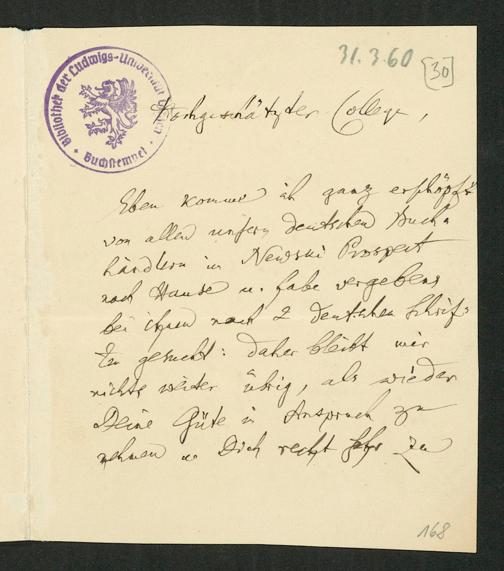 31.3.60
[30]
Bibliothek der Ludwigs-Universität
Buchstempel
Hochgeschätzter College,
Eben komme ich ganz erschöpft
von allen unsern deutschen Buch-
händlern in Newski Prospect
nach Hause u. habe vergebens
bei ihnen nach 2 deutschen Schrif-
ten gesucht: daher bleibt mir
nichts weiter übrig, als wieder
Deine Güte in Anspruch zu
nehmen u. Dich recht sehr zu
168